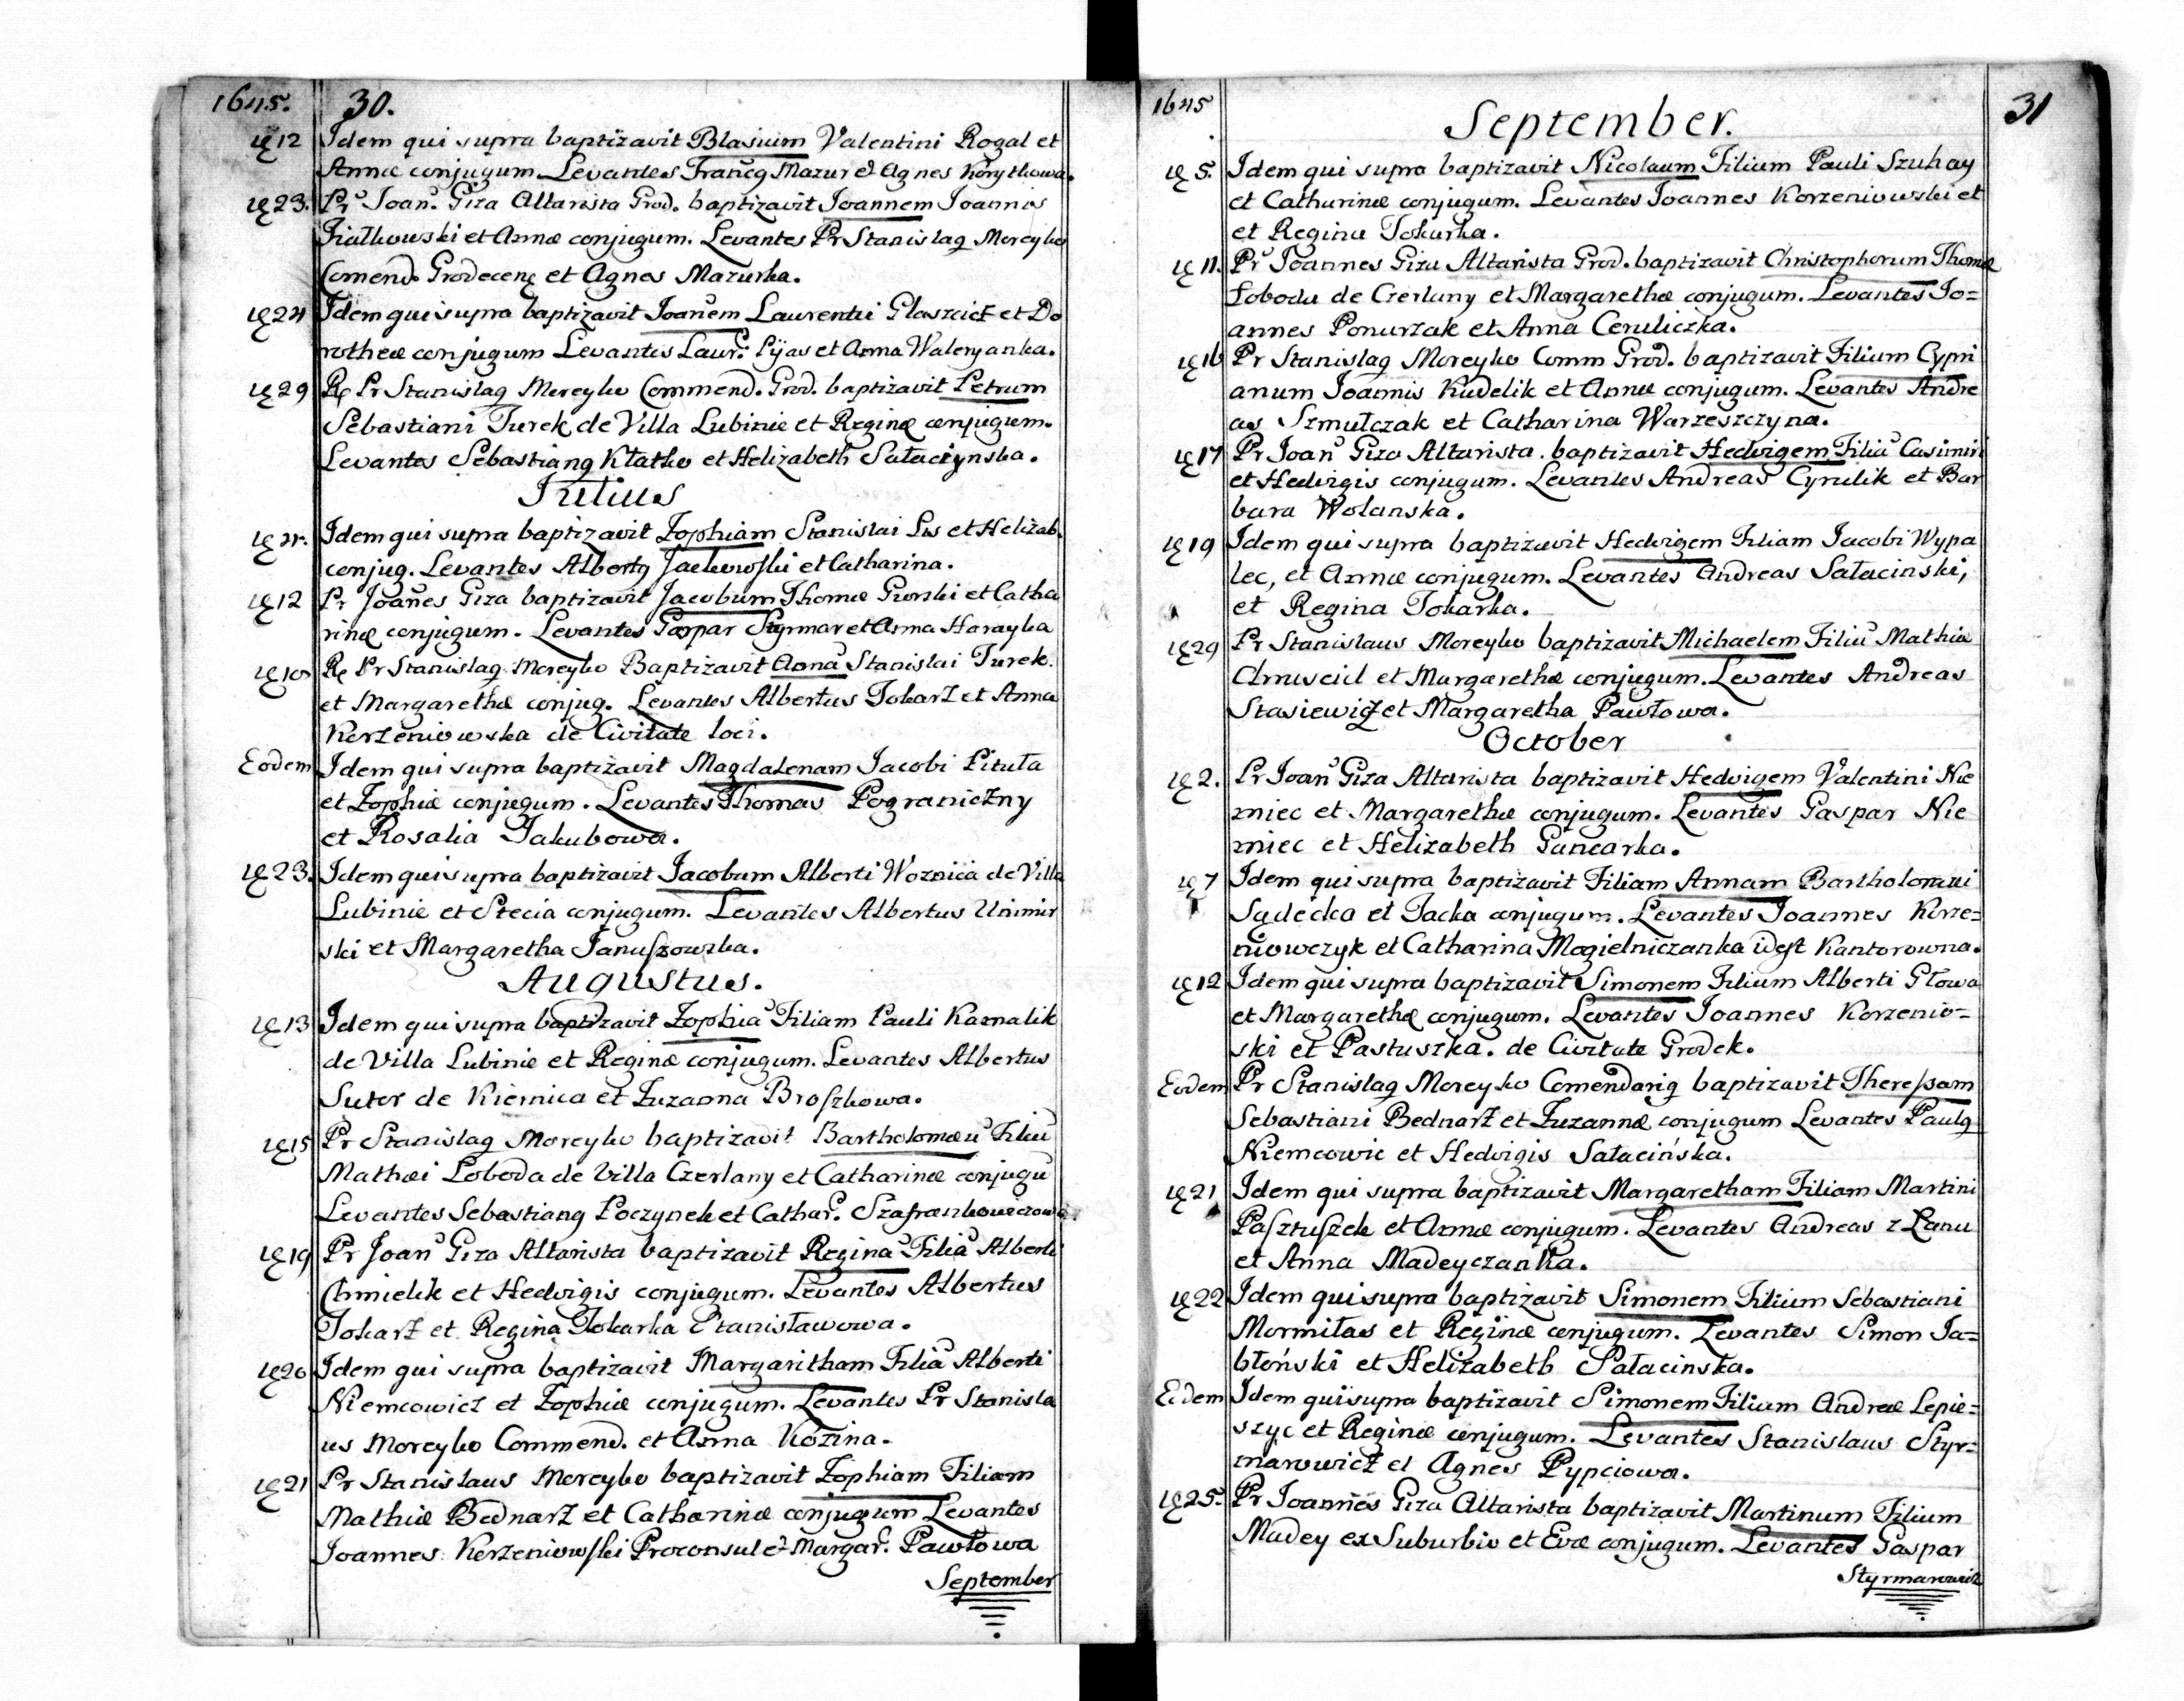 1645. 30.
12 Idem qui supra baptizavit Blasium Valentini Rogal et
Annæ conjugum Levantes Francq Mazur & Agnes Korytkowa.
23. Pr Joan. Giza Altarista Grod. baptizavit Joannem Joannis
Fiałkowski et Annæ conjugum. Levantes Pr Stanislaq Moreyko
Comend. Grodecenq et Agnes Mazurka.
24 Idem qui supra baptizavit Joanem Laurentii Glaszcicz et Do
rotheæ conjugum Levantes Laur. Pÿas et Anna Waleryanka.
29 R Pr Stanislaq Moreyko Commend. Grod. baptizavit Petrum
Sebastiani Turek de Villa Lubinie et Reginæ conjugum.
Levantes Sebastianq Kłatko et Helizabeth Sałaciynska.
Julius
Idem qui supra baptizavit Zophiam Stanislai Lis et Helizab.
conjug. Levantes Albertq Jackowski et Catharina.
12 Pr Joañes Giza baptizavit Jacobum Thomæ Gurski et Catha
rinæ conjugum. Levantes Gaspar Styrmar et Anna Harayka
R Pr Stanislaq Moreyko Baptizavit Annā Stanislai Turek.
et Margarethæ conjug. Levantes Albertus Tokarz et Anna
Korzeniowska de Civitate loci.
Eodem Idem qui supra baptizavit Magdalenam Jacobi Pituła
et Zophiæ conjugum. Levantes Thomas Pograniczny
et Rosalia Jakubowa.
23. Idem qui supra baptizavit Jacobum Alberti Woznica de Villa
Lubinie et Stecia conjugum. Levantes Albertus Unimir
ski et Margaretha Januszowska.
Augustus.
13 Idem qui supra baptizavit Zophiā Filiam Pauli Karnalik
de Villa Lubinie et Reginæ conjugum. Levantes Albertus
Sutor de Kiernica et Zuzanna Broszkowa.
15 Pr Stanislaq Moreyko baptizavit Bartholomæū Filiū
Mathæi Loboda de Villa Czerlany et Catharinæ conjugū
Levantes Sebastianq Poczynek et Cathar. Szafrankowczowa.
19 Pr Joan Giza Altarista baptizavit Reginā Filiā Alberti
Chmielik et Hedvigis conjugum. Levantes Albertus
Tokarz et Regina Tokarka Stanisławowa.
20 Idem qui supra baptizavit Margaritham Filiā Alberti
Niemcowicz et Zophiæ conjugum. Levantes Pr Stanisla
us Moreyko Commend. et Anna Kozina.
21 Pr Stanislaus Moreyko baptizavit Zophiam Filiam
Mathiæ Bednarz et Catharinæ conjugum Levantes
Joannes Korzeniowski Proconsul & Margar. Pawłowa
September
1645 September. 31
5. Idem qui supra baptizavit Nicolaum Filium Pauli Szuhay
et Catharinæ conjugum. Levantes Joannes Korzeniowski et
et Regina Tokarka.
11. Pr Joannes Giza Altarista Grod. baptizavit Christophorum Thomæ
Łoboda de Czerlany et Margarethæ conjugum. Levantes Jo=
annes Ponurzak et Anna Ceruliczka.
16 Pr Stanislaq Moreyko Comm Grod. baptizavit Filium Cypri
anum Joannis Kudelik et Annæ conjugum. Levantes Andre
as Szmulczak et Catharina Warzeszczyna.
17 Pr Joan Giza Altarista. baptizavit Hedvigem Filiā Casimiri
et Hedvigis conjugum. Levantes Andreas Cyrulik et Bar
bara Wolanska.
19 Idem qui supra baptizavit Hedvigem Filiam Jacobi Wypa
lec, et Annæ conjugum. Levantes Andreas Sałacinski,
et Regina Tokarka.
29 Pr Stanislaus Moreyko baptizavit Michaelem Filiū Mathia
et Margarethæ conjugum. Levantes Andreas
Stasiewicz et Margaretha Pawłowa.
October
2. Pr Joan Giza Altarista baptizavit Hedvigem Valentini Nie
miec et Margarethæ conjugum. Levantes Gaspar Nie
miec et Helizabeth Gancarka.
7 Idem qui supra baptizavit Filiam Annam Bartholomæi
Sądecka et Jacka conjugum. Levantes Joannes Korze=
niowczyk et Catharina Mogielniczanka idest Kantorowna.
12 Idem qui supra baptizavit Simonem Filium Alberti Głowa
et Margarethæ conjugum. Levantes Joannes Korzenio=
ski et Pastuszka. de Civitate Grodek.
Eodem Pr Stanislaq Moreyko Comendariq baptizavit Theressam
Sebastiani Bednarz et Zuzannæ conjugum Levantes Paulq
Niemcowic et Hedvigis Sałacińska.
21 Idem qui supra baptizavit Margaretham Filiam Martini
Pasztuszek et Annæ conjugum. Levantes Andreas z Łanu
et Anna Madeyczanka.
22 Idem qui supra baptizavit Simonem Filium Sebastiani
Mormiłas et Reginæ conjugum. Levantes Simon Ja=
błoński et Helizabeth Sałacinska.
Eodem Idem qui supra baptizavit Simonem Filium Andreæ Lepie=
szyc et Reginæ conjugum. Levantes Stanislaus Styr=
marowicz et Agnes Pypciowa.
25. Pr Joannes Giza Altarista baptizavit Martinum Filium
Madey ex Suburbio et Evæ conjugum. Levantes Gaspar
Styrmarowicz